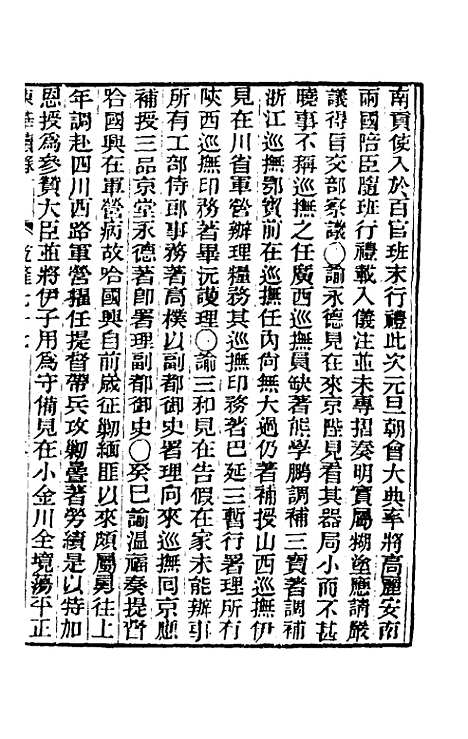 南貢使入於百官班末行禮此次元旦朝會大典率將高麗安南
兩國陪臣隨班行禮載入儀注並未專摺奏明實屬糊塗應請嚴
議得旨交部察議○諭永德見在來京陛見看其器局小而不甚
曉事不稱巡撫之任廣西巡撫員缺著熊學鵬調補三寶著調補
浙江巡撫鄂寶前在巡撫任內尚無大過仍著補授山西巡撫伊
見在川省軍營辦理糧務其巡撫印務著巴延三暫行署理所有
陝西巡撫印務著畢沅護理○諭三和見在告假在家未能辦事
所有工部侍郎事務著高樸以副都御史署理向來巡撫回京應
補授三品京堂永德著卽署理副都御史○癸巳諭溫福奏提督
哈國興在軍營病故哈國興自前歲征勦緬匪以來頗屬勇往上
年調赴四川西路軍營擢任提督帶兵攻勦疊著勞績是以特加
恩授為參贊大臣並將伊子用為守備見在小金川全境蕩平正
東華續錄 乾隆七十七